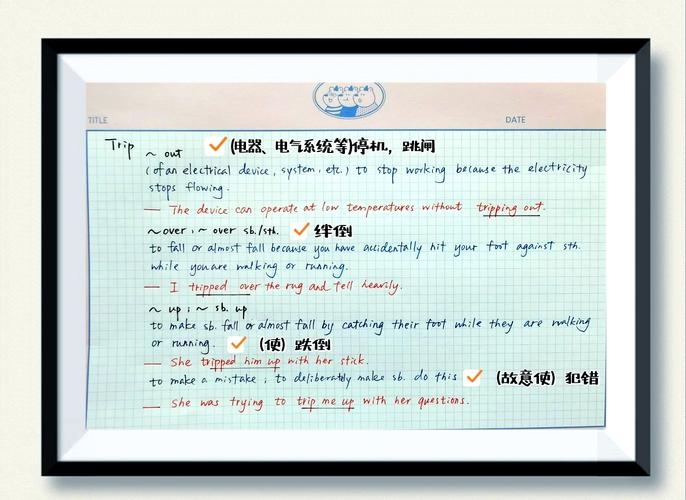 TITLE
DATE
Trip
~ out ✓(电器、电气系统等)停机，跳闸
(of an electrical device, system, etc.) to stop working because the electricity
stops flowing.
— The device can operate at low temperatures without tripping out.
~over ; ~ over sb./sth. ✓ 绊倒
to fall or almost fall because you have accidentally hit your foot against sth.
while you are walking or running.
— I tripped over the rug and fell heavily.
~ up ; ~ sb. up
to make sb. fall or almost fall by catching their foot while they are walking
or running. ✓ (使) 跌倒
— She tripped him up with her stick.
to make a mistake ; to deliberately make sb. do this ✓ (故意使) 犯错
— She was trying to trip me up with her questions.